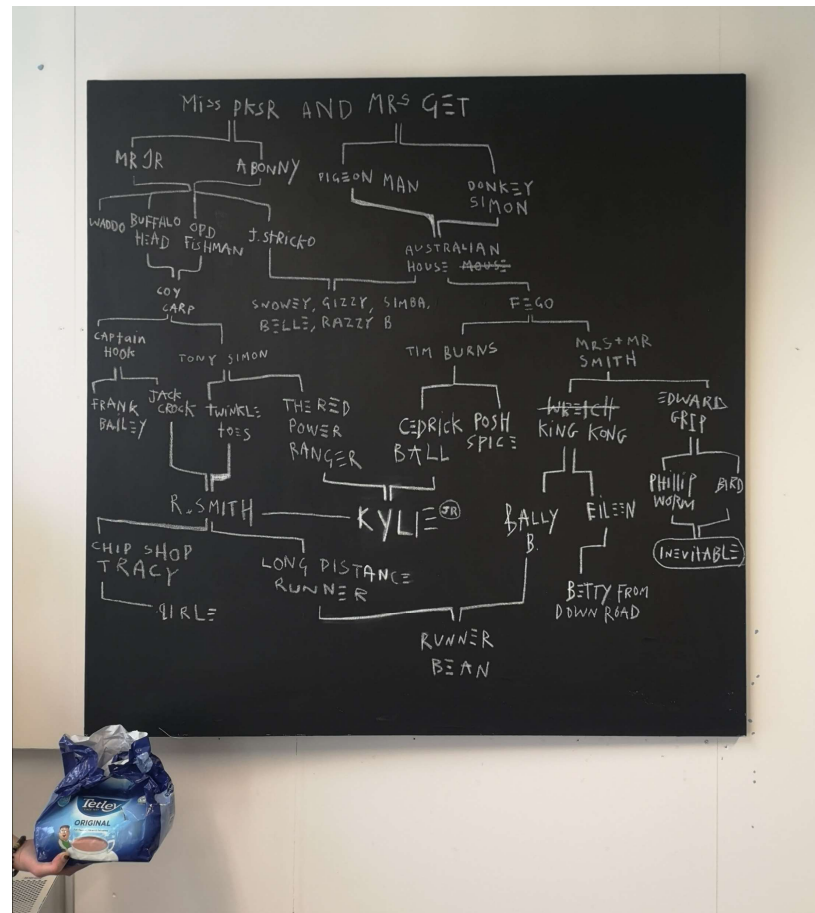 Miss PKSR AND MRS GET
MR JR
A BONNY
PIGEON MAN
DONKEY
SIMON
WADDO
BUFFALO
HEAD
OPD
FISHMAN
J.STRICKO
AUSTRALIAN
HOUSE MOUSE
COY
CARP
SNOWEY, GIZZY, SIMBA,
BELLE, RAZZY B
FEGO
CAPtain
HOOK
TONY SIMON
TIM BURNS
MRS+MR
SMITH
FRANK
BAILEY
JACK
CROCK
tWINKLE
tOES
THE RED
POWER
RANGER
CEDRICK
BALL
POSH
SPICE
WRETCH
KING KONG
EDWARD
GRIP
PHILLIP
WORM
BIRD
R. SMITH
KYLIE JR
BALLY
B.
EILEEN
INEVITABLE
CHIP SHOP
TRACY
LONG DISTANCE
RUNNER
BETTY FROM
DOWN ROAD
RUNNER
BEAN
Tetley
ORIGINAL